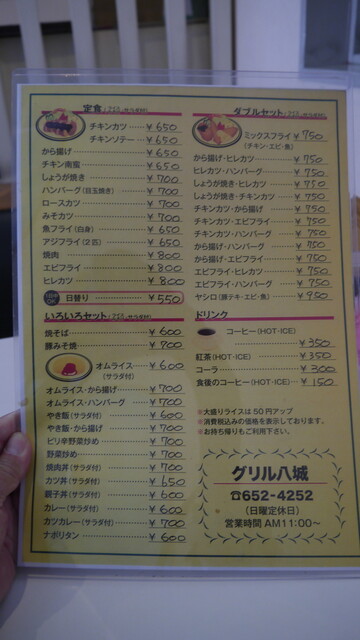 定食
チキンカツ ¥650
チキンソテー ¥650
から揚げ ¥650
チキン南蛮 ¥650
しょうが焼き ¥700
ハンバーグ(目玉焼き) ¥700
ロースカツ ¥700
みそカツ ¥700
魚フライ(白身) ¥650
アジフライ(2匹) ¥650
焼肉 ¥800
エビフライ ¥800
ヒレカツ ¥800
日替り ¥550
いろいろセット
焼そば ¥600
豚みそ焼 ¥700
オムライス ¥600
(サラダ付)
オムライス・から揚げ ¥700
オムライス・ハンバーグ ¥700
やき飯(サラダ付) ¥600
やき飯・から揚げ ¥700
ピリ辛野菜炒め ¥700
野菜炒め ¥700
焼肉丼(サラダ付) ¥700
カツ丼(サラダ付) ¥650
親子丼(サラダ付) ¥600
カレー(サラダ付) ¥600
カツカレー(サラダ付) ¥700
ナポリタン ¥600
ダブルセット
ミックスフライ ¥750
(チキン・エビ・魚)
から揚げ・ヒレカツ ¥750
ヒレカツ・ハンバーグ ¥750
しょうが焼き・ヒレカツ ¥750
しょうが焼き・チキンカツ ¥750
チキンカツ・から揚げ ¥750
チキンカツ・エビフライ ¥750
チキンカツ・ハンバーグ ¥750
から揚げ・ハンバーグ ¥750
から揚げ・エビフライ ¥750
エビフライ・ヒレカツ ¥750
エビフライ・ハンバーグ ¥750
ヤシロ(豚テキ・エビ・魚) ¥950
ドリンク
コーヒー(HOT・ICE)
¥350
紅茶(HOT・ICE) ¥350
コーラ ¥300
食後のコーヒー(HOT・ICE) ¥150
※大盛りライスは50円アップ
※消費税込みの価格を表示しております。
※お持ち帰りもご利用下さい。
グリル八城
☎652-4252
(日曜定休日)
営業時間 AM11:00〜